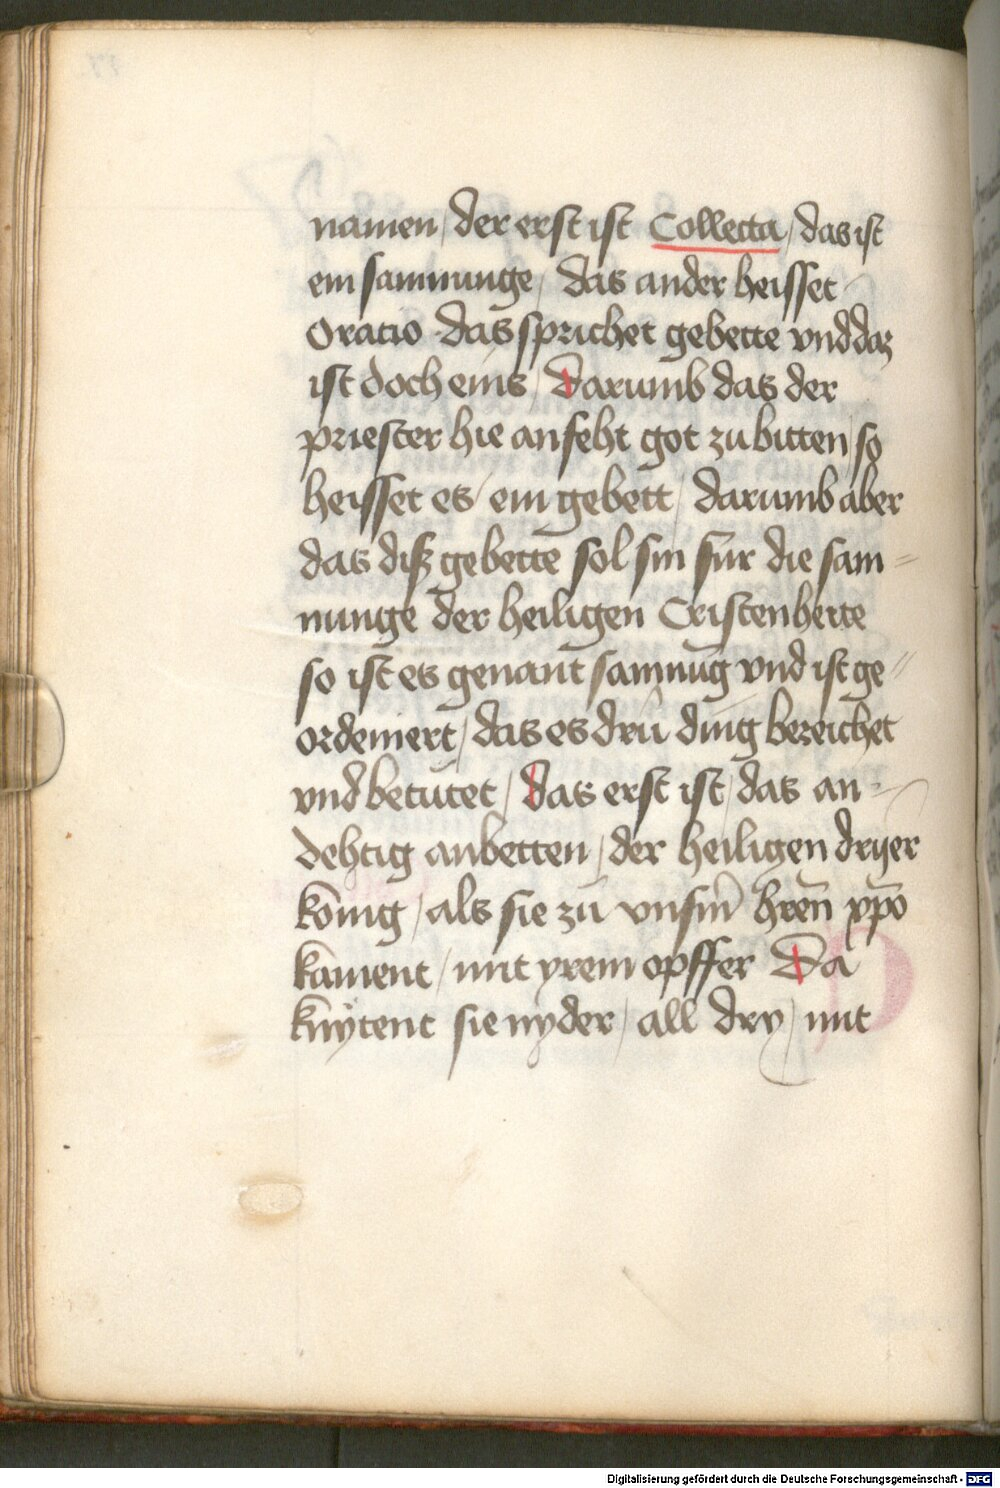 namen / der erst ist Collecta / das ist
ein samnunge / das ander heisset
Oratio das sprichet gebette vnd daz
ist doch eins / Darumb das der
priester hie anfeht got zu bitten / so
heisset es / ein gebett / darumb aber
das diß gebette sol sin für die sam-
nunge der heiligen Cristenheite
so ist es genant samnūg vnd ist ge-
ordeniert / das es drü ding bezeichet
vnd betütet / Das erst ist / das an-
dehtig anbetten / der heiligen dryer
kōnig / als sie zů vnsm̄ hr̄en xp̄o
kament / mit yrem opffer Da
knÿtent sie nyder / all dry / mit
Digitalisierung gefördert durch die Deutsche Forschungsgemeinschaft - DFG